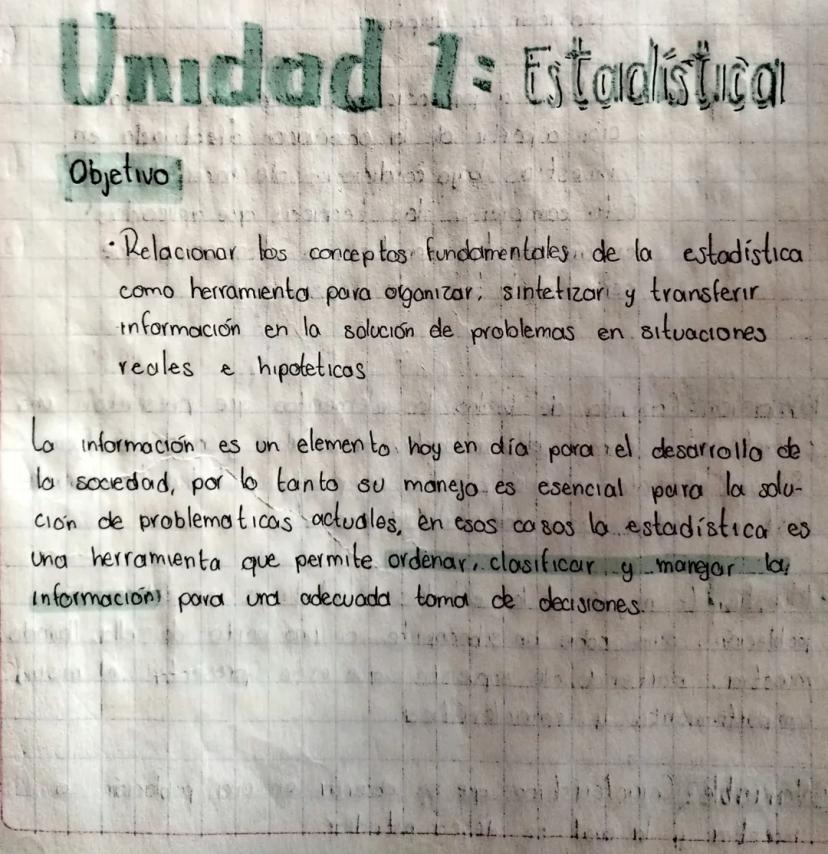 Unidad 1: Estadística
Objetivo:
· Relacionar los conceptos fundamentales de la estadística
como herramienta para organizar, sintetizar y transferir
información en la solución de problemas en situaciones
reales e hipoteticas
La información es un elemento hoy en día para el desarrollo de
la sociedad, por lo tanto su manejo es esencial para la solu-
ción de problematicas actuales, en esos casos la estadística es
una herramienta que permite ordenar, clasificar y manejar la
información para una adecuada toma de decisiones.